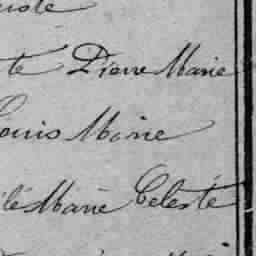 te Pierre Marie
Louis Marie
Marie Celeste